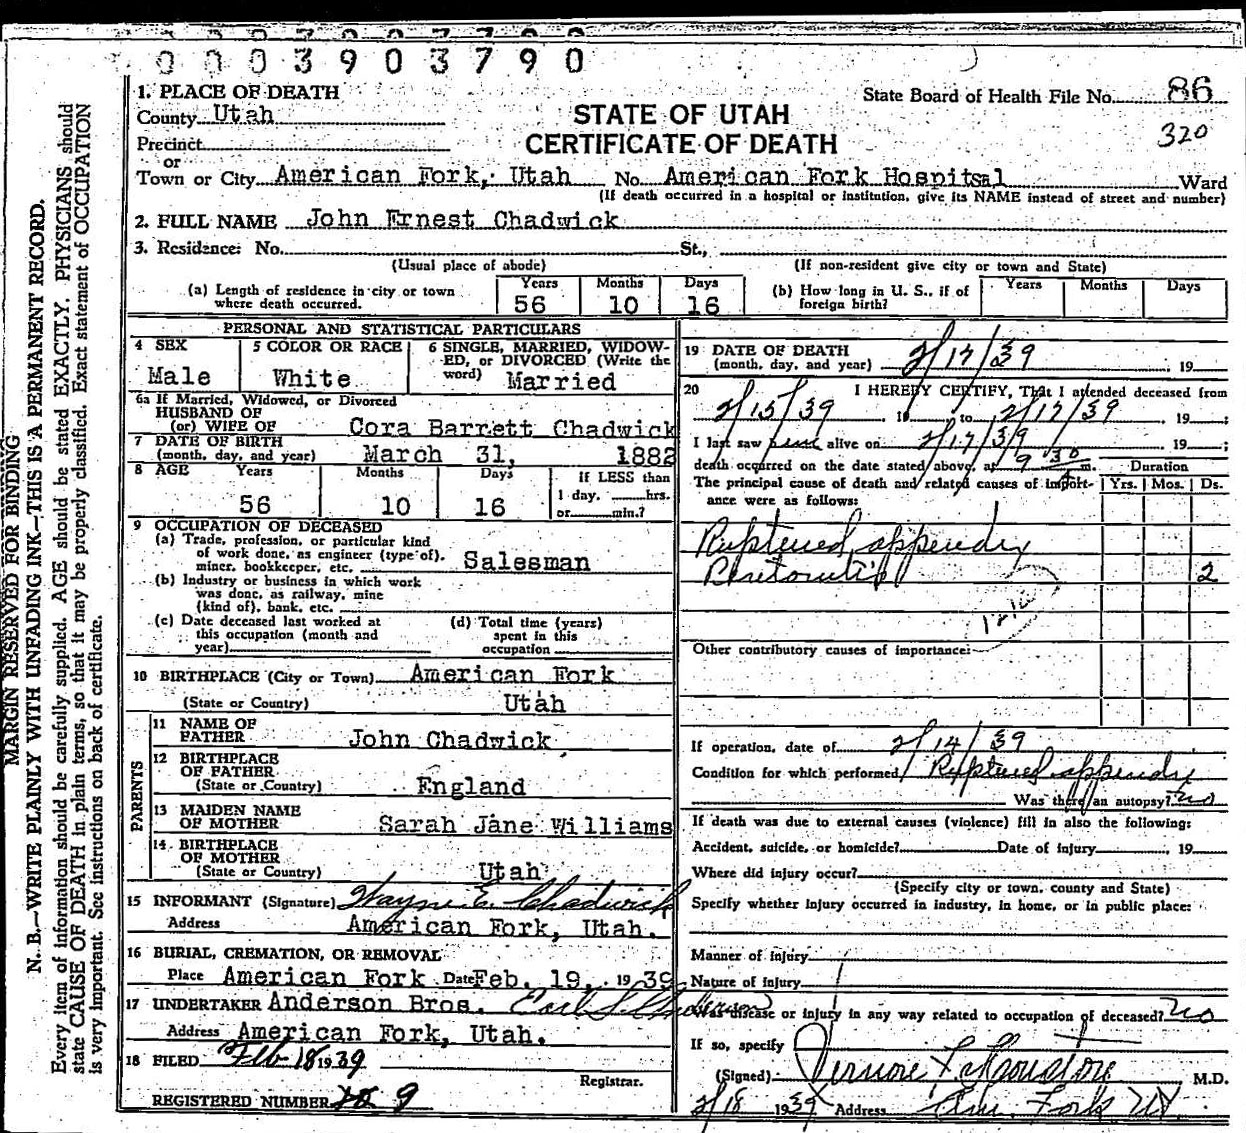 0003903790
1. PLACE OF DEATH
County Utah
STATE OF UTAH
CERTIFICATE OF DEATH
State Board of Health File No. 86
320
Precinct
or
Town or City American Fork, Utah No. American Fork Hospitsal Ward
(If death occurred in a hospital or institution, give its NAME instead of street and number)
2. FULL NAME John Ernest Chadwick
3. Residence: No. St.,
(Usual place of abode) (If non-resident give city or town and State)
(a) Length of residence in city or town where death occurred. Years 56 Months 10 Days 16
(b) How long in U. S., if of foreign birth? Years Months Days
PERSONAL AND STATISTICAL PARTICULARS
4 SEX Male
5 COLOR OR RACE White
6 SINGLE, MARRIED, WIDOW-
ED, or DIVORCED (Write the
word) Married
6a If Married, Widowed, or Divorced
HUSBAND OF
(or) WIFE OF Cora Barrett Chadwick
7 DATE OF BIRTH
(month, day, and year) March 31, 1882
8 AGE Years 56 Months 10 Days 16
If LESS than
1 day, hrs.
or min.?
9 OCCUPATION OF DECEASED
(a) Trade, profession, or particular kind
of work done, as engineer (type of),
miner, bookkeeper, etc. Salesman
(b) Industry or business in which work
was done, as railway, mine
(kind of), bank, etc.
(c) Date deceased last worked at
this occupation (month and
year)
(d) Total time (years)
spent in this
occupation
10 BIRTHPLACE (City or Town) American Fork
(State or Country) Utah
PARENTS
11 NAME OF
FATHER John Chadwick
12 BIRTHPLACE
OF FATHER
(State or Country) England
13 MAIDEN NAME
OF MOTHER Sarah Jane Williams
14 BIRTHPLACE
OF MOTHER
(State or Country) Utah
15 INFORMANT (Signature) Wayne E. Chadwick
Address American Fork, Utah.
16 BURIAL, CREMATION, OR REMOVAL
Place American Fork Date Feb. 19, 1939
17 UNDERTAKER Anderson Bros. Earl S. Anderson
Address American Fork, Utah.
18 FILED Feb 18 1939
Registrar.
REGISTERED NUMBER 9
19 DATE OF DEATH
(month, day, and year) 2/17/39 , 19
20 I HEREBY CERTIFY, That I attended deceased from
2/15/39 19 to 2/17/39 , 19 ;
I last saw him alive on 2/17/39 , 19 ;
death occurred on the date stated above, at 9 30 m.
The principal cause of death and related causes of import-
ance were as follows:
Duration
Yrs. Mos. Ds.
Ruptured appendix
Peritonitis 2
Other contributory causes of importance:
If operation, date of 2/14/39
Condition for which performed Ruptured appendix
Was there an autopsy? no
If death was due to external causes (violence) fill in also the following:
Accident, suicide, or homicide? Date of injury , 19
Where did injury occur?
(Specify city or town, county and State)
Specify whether injury occurred in industry, in home, or in public place:
Manner of injury
Nature of injury
Was disease or injury in any way related to occupation of deceased? no
If so, specify
(Signed) Vernore F. Houstone M.D.
2/18 1939 Address Am. Fork Ut.
MARGIN RESERVED FOR BINDING
N. B.—WRITE PLAINLY WITH UNFADING INK—THIS IS A PERMANENT RECORD.
Every item of information should be carefully supplied. AGE should be stated EXACTLY. PHYSICIANS should
state CAUSE OF DEATH in plain terms, so that it may be properly classified. Exact statement of OCCUPATION
is very important. See instructions on back of certificate.